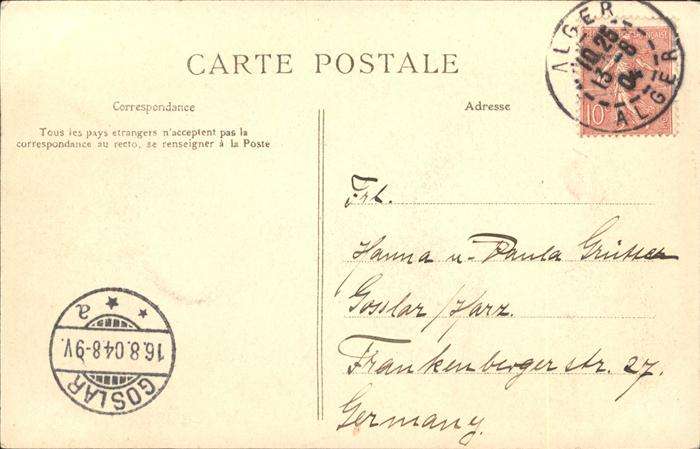 CARTE POSTALE
Correspondance
Tous les pays etrangers n'acceptent pas la
correspondance au recto, se renseigner à la Poste
Adresse
ALGER
10 25
13 -8
04
ALGER
10c
Frl.
Hanna u. Paula Grüsser
Gosslar/Harz.
Frankenbergerstr. 27.
Germany.
GOSLAR
16.8.04 8-9V.
a